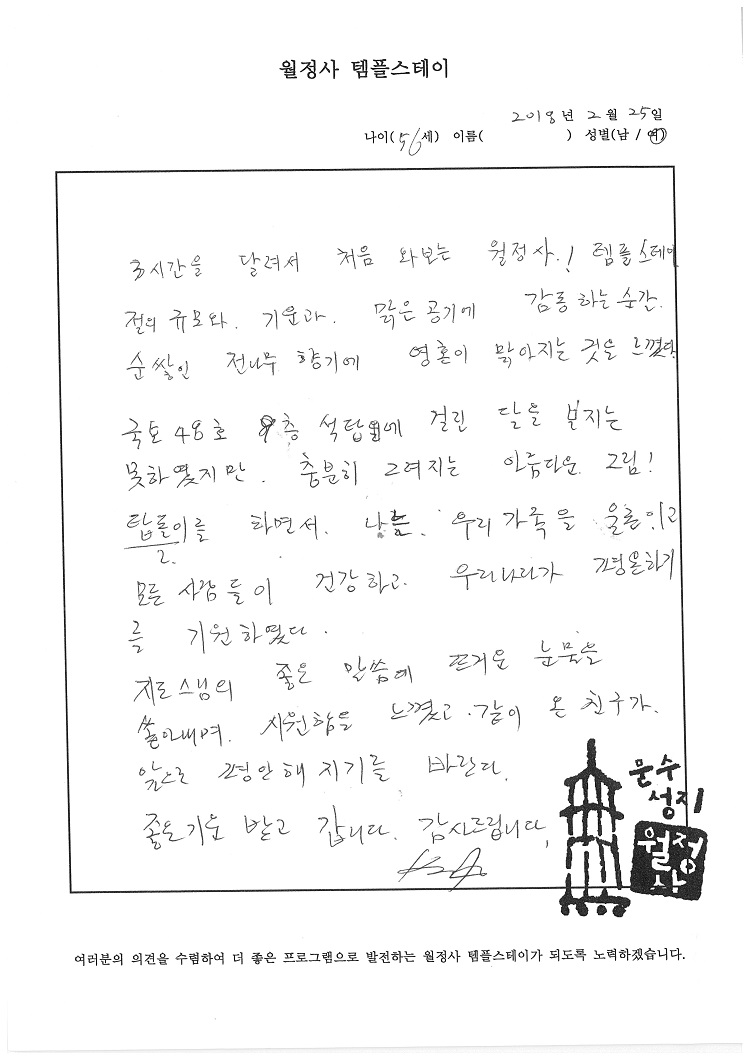 월정사 템플스테이
2018년 2월 25일
나이(56세) 이름( ) 성별(남 / 여)
3시간을 달려서 처음 와보는 월정사.! 템플스테이
절의 규모와. 기운과. 맑은 공기에 감동하는 순간.
순쌓인 전나무 향기에 영혼이 맑아지는 것을 느꼈다.
국보 48호 9층 석탑에 걸린 달을 보지는
못하였지만. 충분히 그려지는 아름다운 그림!
탑돌이를 하면서. 나를. 우리 가족을
모든 사람들이 건강하고. 우리나라가 평온하기
를 기원하였다.
지도스님의 좋은 말씀에 뜨거운 눈물을
쏟아내며. 시원함을 느꼈고. 같이 온 친구가.
앞으로 평안해 지기를 바란다.
좋은기운 받고 갑니다. 감사드립니다,
문수
성지
월정
사
여러분의 의견을 수렴하여 더 좋은 프로그램으로 발전하는 월정사 템플스테이가 되도록 노력하겠습니다.